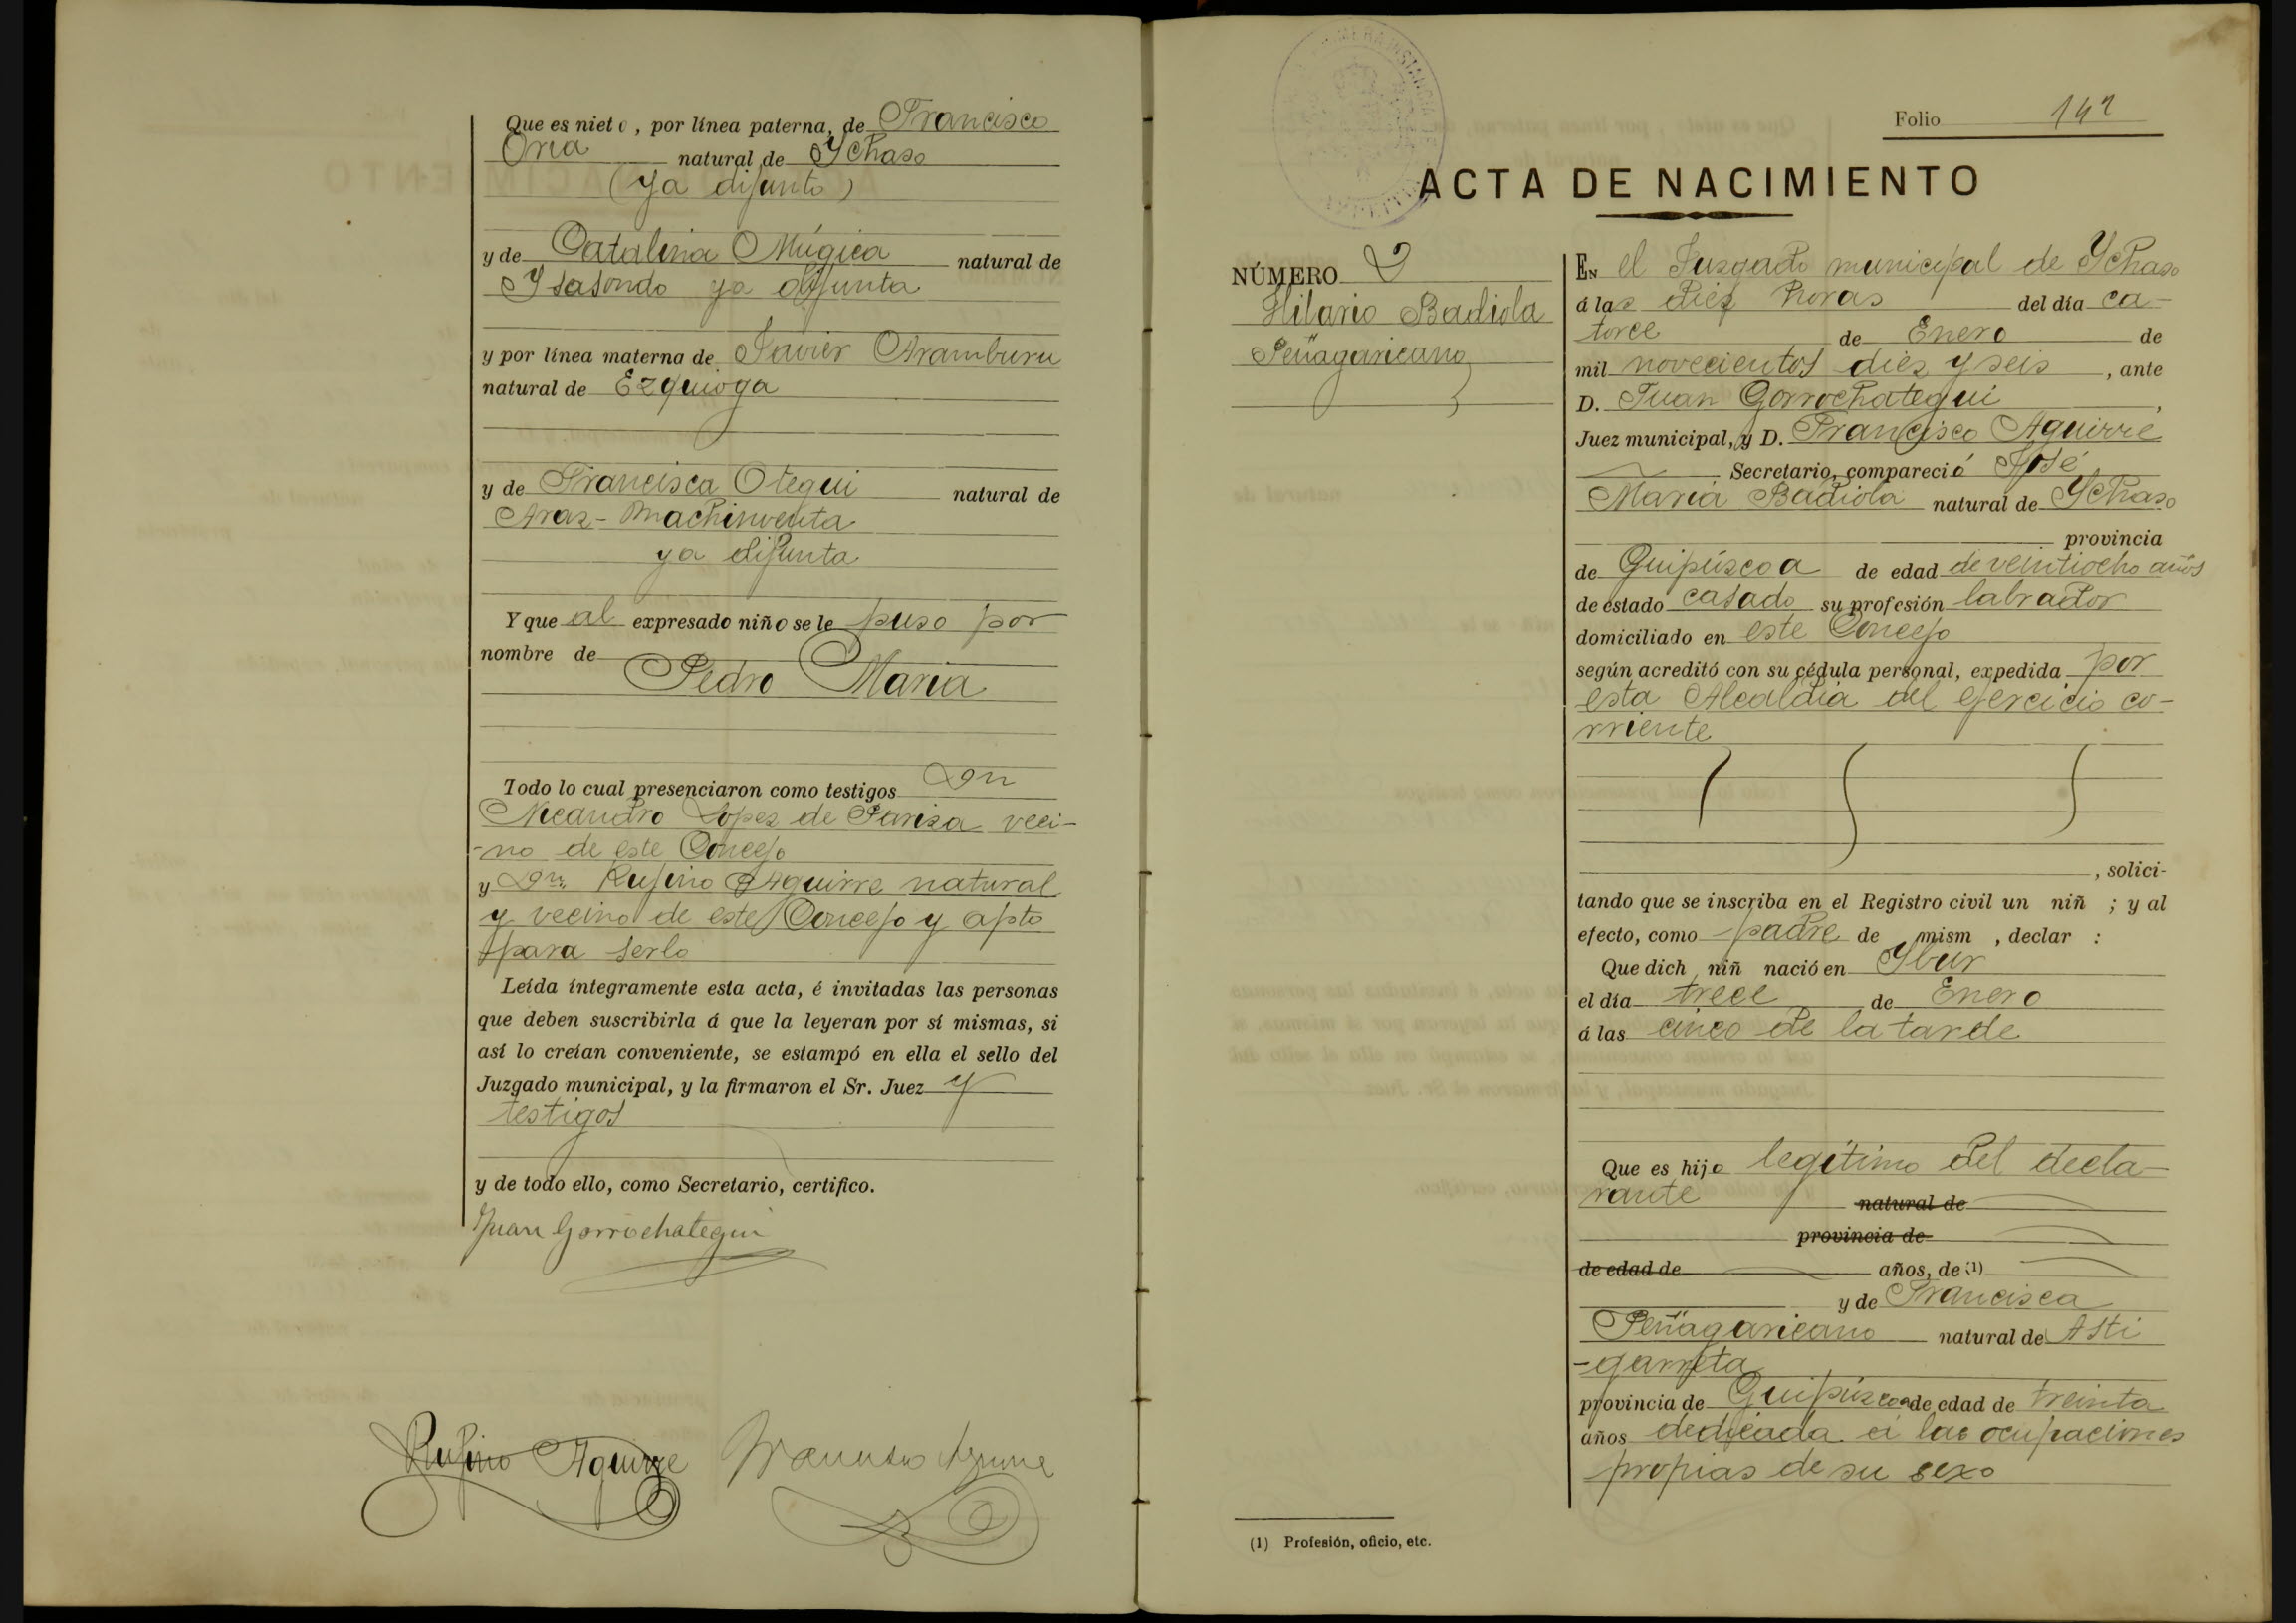 Que es nieto, por línea paterna, de Francisco
Oria natural de Ychaso
(ya difunto)
y de Catalina Múgica natural de
Ysasondo ya difunta
y por línea materna de Javier Aramburu
natural de Ezquioga
y de Francisca Otegui natural de
Araz-Machinventa
ya difunta
Y que al expresado niño se le puso por
nombre de
Pedro Maria
Todo lo cual presenciaron como testigos Don
Nicandro Lopez de Pariza veci-
-no de este Concejo
y Dn. Rufino Aguirre natural
y vecino de este Concejo y apto
para serlo
Leída íntegramente esta acta, é invitadas las personas
que deben suscribirla á que la leyeran por sí mismas, si
así lo creían conveniente, se estampó en ella el sello del
Juzgado municipal, y la firmaron el Sr. Juez y
testigos
y de todo ello, como Secretario, certifico.
Juan Gorrochategui
Rufino Aguirre
Folio 142
ACTA DE NACIMIENTO
NÚMERO 2
Hilario Badiola
Peñagaricano
EN el Juzgado municipal de Ychaso
á las diez horas del día ca-
torce de Enero de
mil novecientos diez y seis, ante
D. Juan Gorrochategui,
Juez municipal, y D. Francisco Aguirre
Secretario, compareció José
Maria Badiola natural de Ychaso
provincia
de Guipúzcoa de edad de veintiocho años
de estado casado su profesión labrador
domiciliado en este Concejo
según acreditó con su cédula personal, expedida por
esta Alcaldia del ejercicio co-
rriente
, solici-
tando que se inscriba en el Registro civil un niñ ; y al
efecto, como padre de mism , declar :
Que dich niñ nació en Ybur
el día trece de Enero
á las cinco de la tarde
Que es hijo legítimo del decla-
rante natural de
provincia de
de edad de años, de (1)
y de Francisca
Peñagaricano natural de Asti
-garreta
provincia de Guipúzcoa de edad de treinta
años dedicada á las ocupaciones
propias de su sexo
(1) Profesión, oficio, etc.